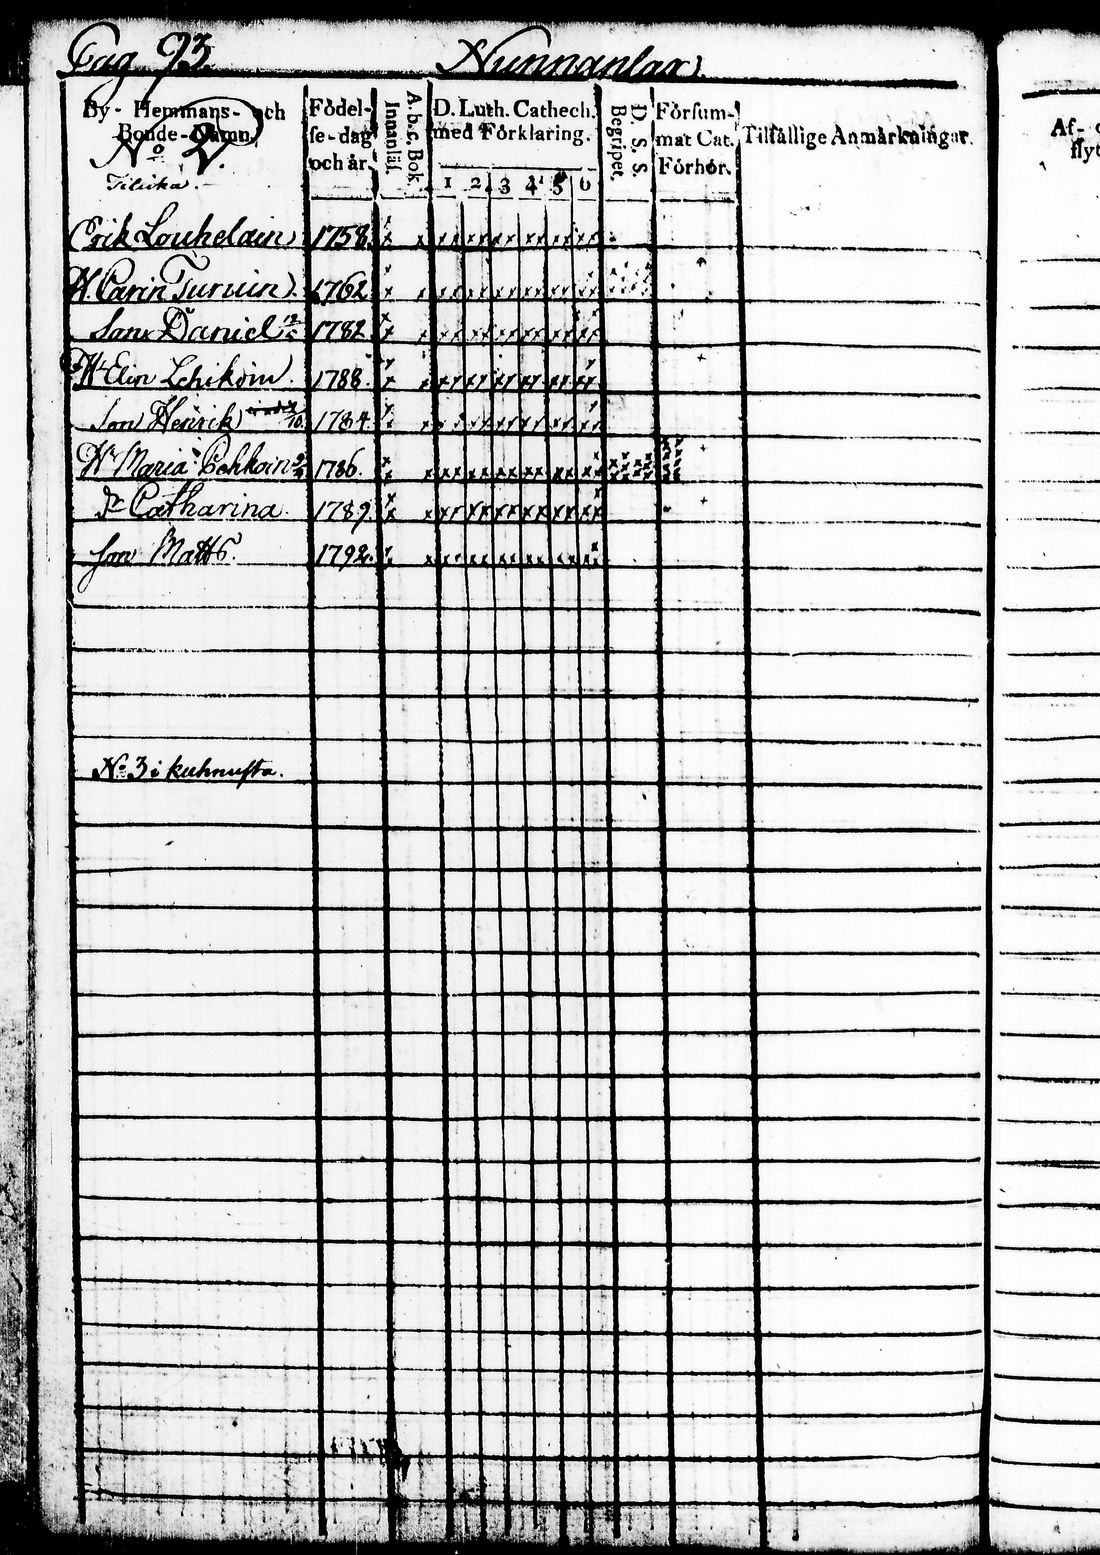 Pag. 93. Nunnanlax
By- Hemmans- och
Bonde-Namn.
No 2.
Tiluka.
Födel-
se-dag
och år.
A. b. c. Bok.
Innanläs.
D. Luth. Cathech.
med Förklaring.
1 2 3 4 5 6
D. S. S.
Begripet.
Försum-
mat Cat.
Förhör.
Tilfällige Anmärkningar.
Af-
flyt
Erik Louhelain 1758.
H. Carin Turuin 1762
Son Daniel 1782
H. Elin Lehikoin 1788.
Son Henrik 1784
H. Maria 1786.
Dr Catharina. 1789
Son Matts. 1792.
No 3 i kuhnusta.